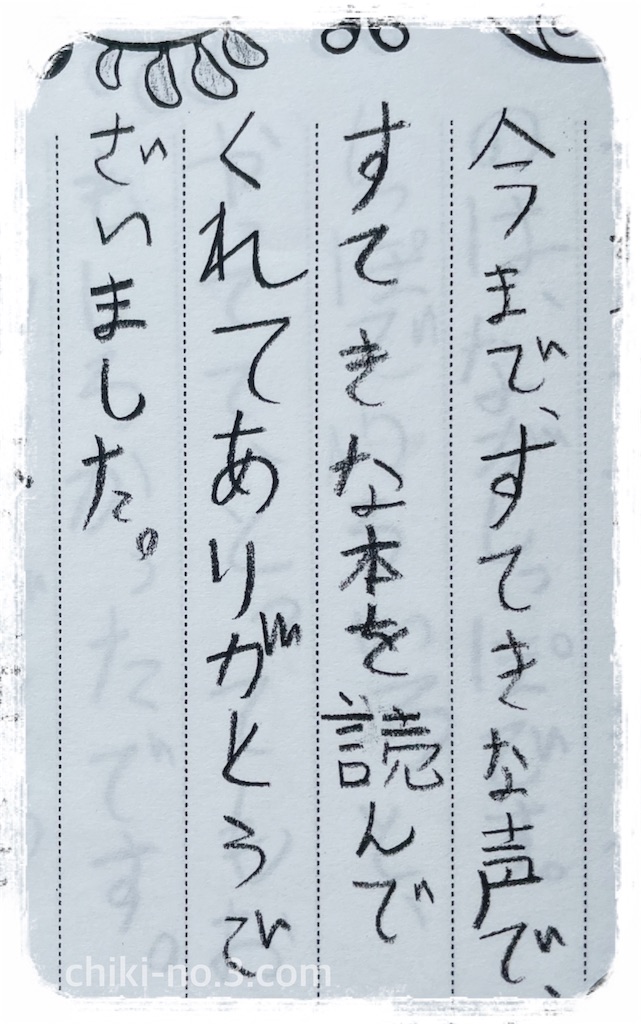 今まで、すてきな声で、
すてきな本を読んで
くれてありがとうご
ざいました。
chiki-no.3.com